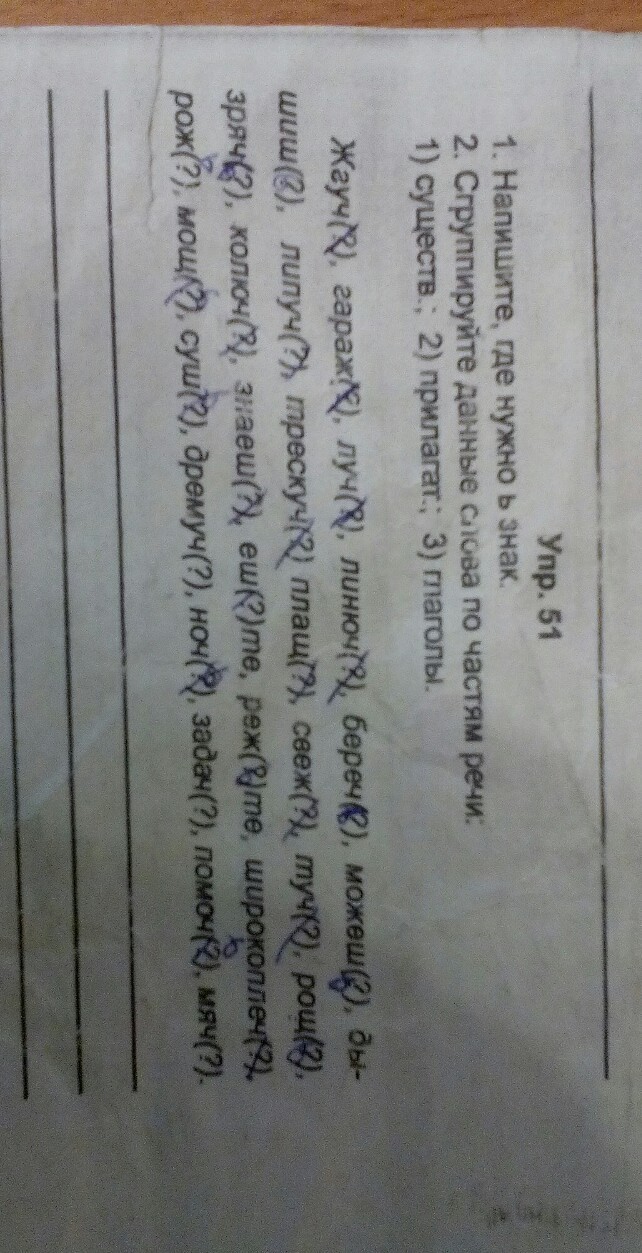 Упр. 51
1. Напишите, где нужно ь знак.
2. Сгруппируйте данные слова по частям речи:
1) существ.; 2) прилагат.; 3) глаголы.
Жгуч(?), гараж(?), луч(?), линюч(?), береч(?), можеш(?), ды-
шиш(?), липуч(?), трескуч(?) плащ(?), свеж(?), туч(?), рощ(?),
зряч(?), колюч(?), знаеш(?), еш(?)те, реж(?)те, широкоплеч(?),
рож(?), мощ(?), суш(?), дремуч(?), ноч(?), задач(?), помоч(?), мяч(?).